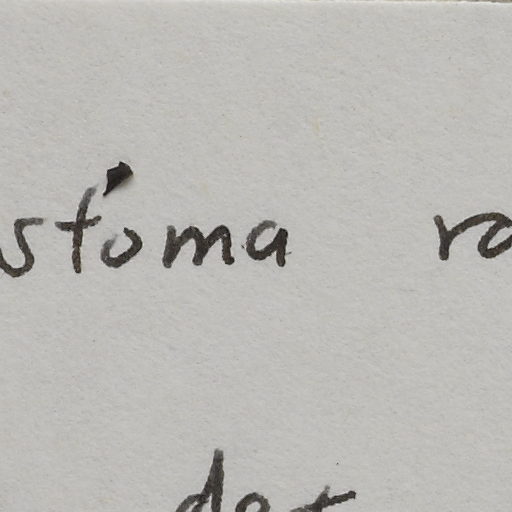 stoma ra
det